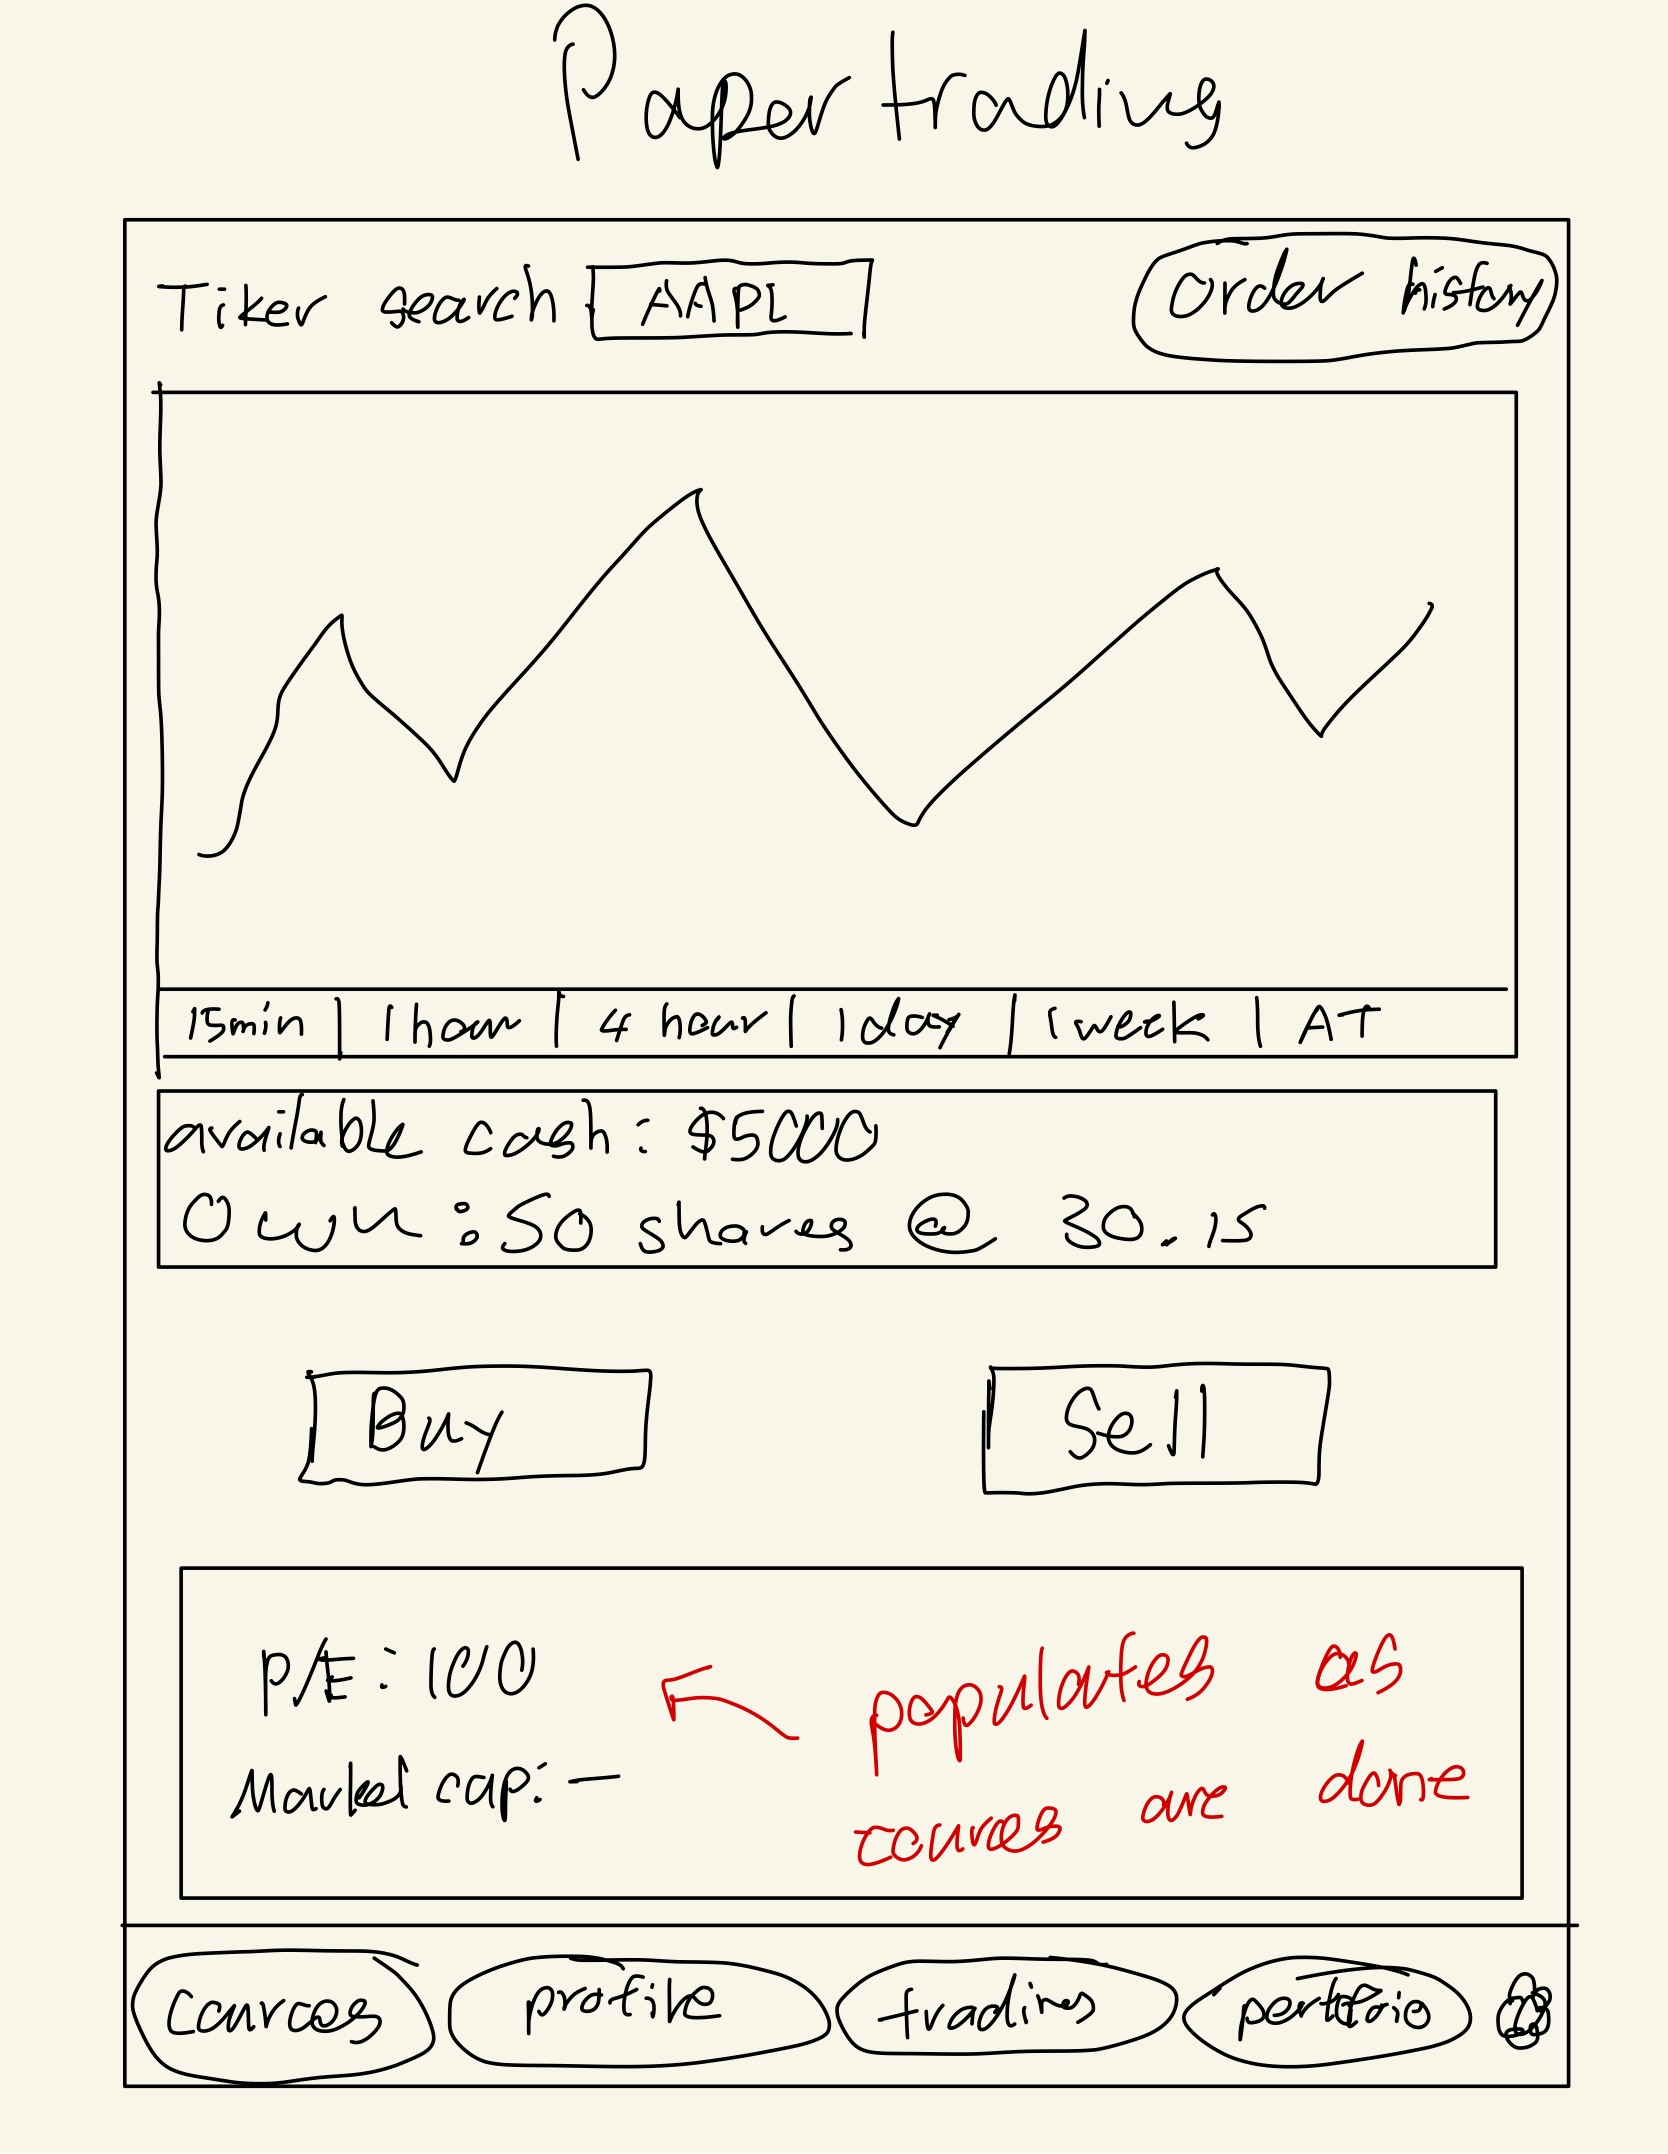 Paper trading
Tiker search AAPL order history
15min | 1 hour | 4 hour | 1 day | 1 week | AT
available cash: $5000
Own: 50 shares @ 30.15
Buy Sell
P/E: 100
Market cap: —
populates as
cources are done
cources profile trading